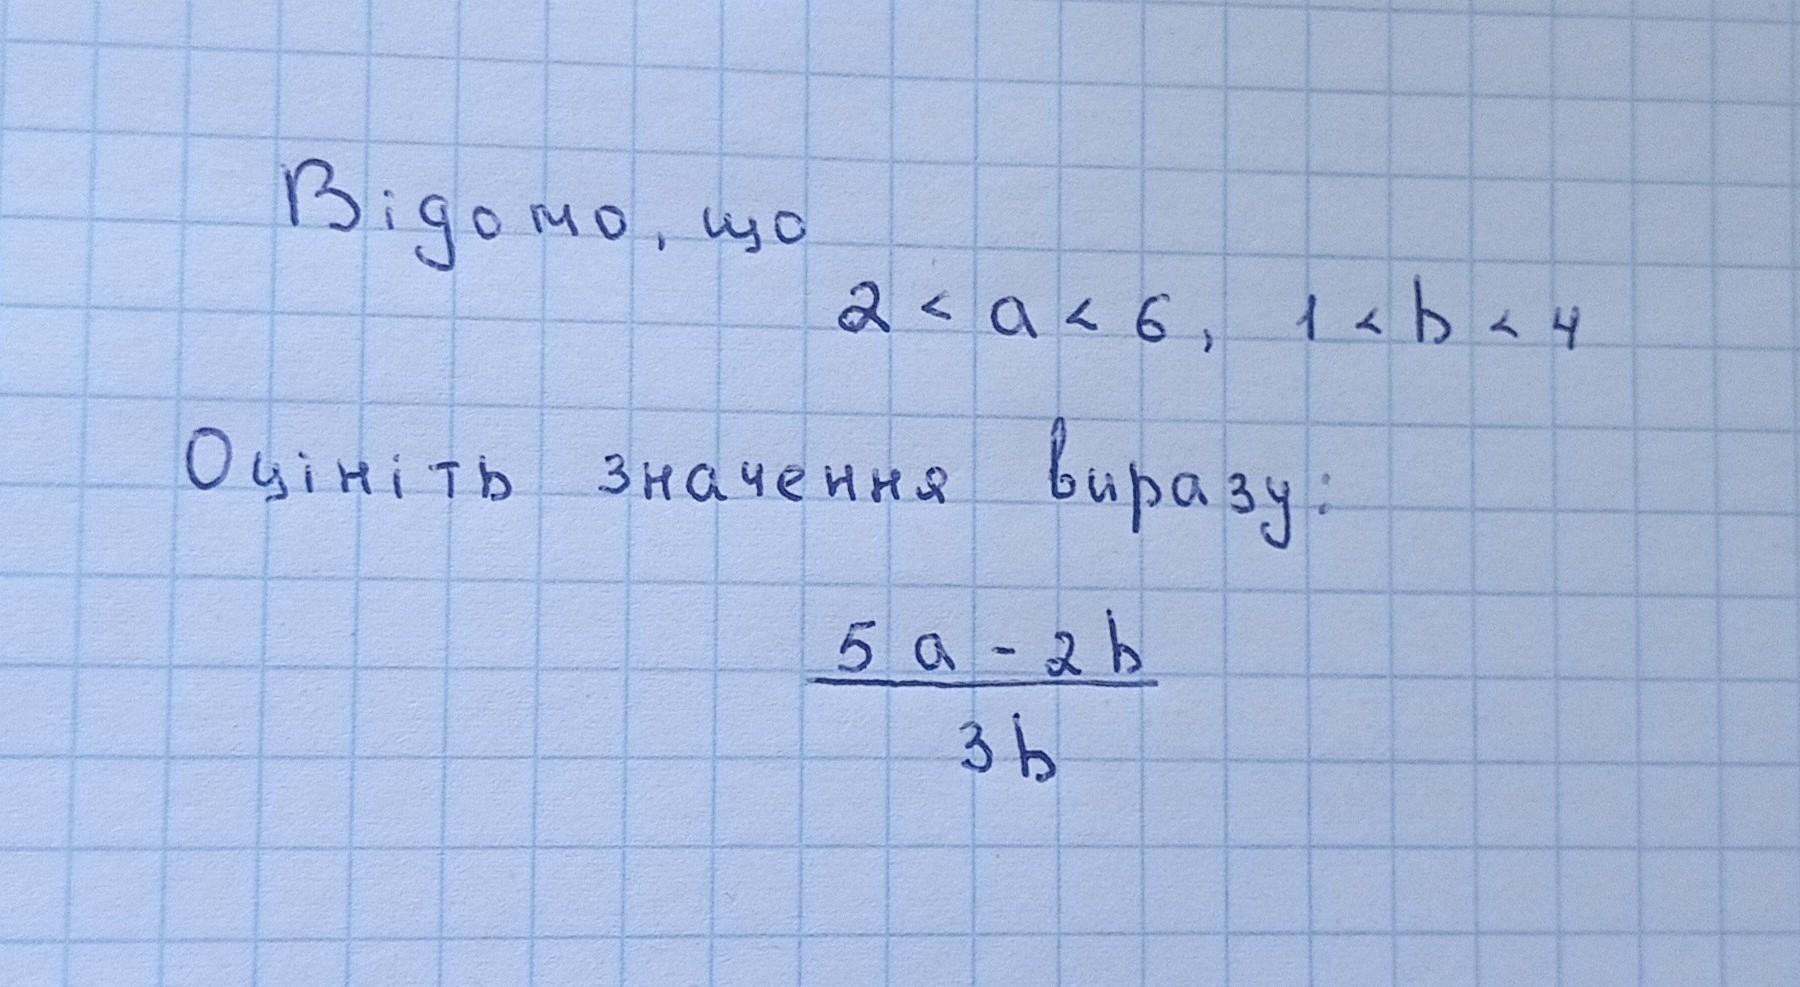 Відомо, що
2 < a < 6, 1 < b < 4
Оцініть значення виразу:
5a - 2b
3b